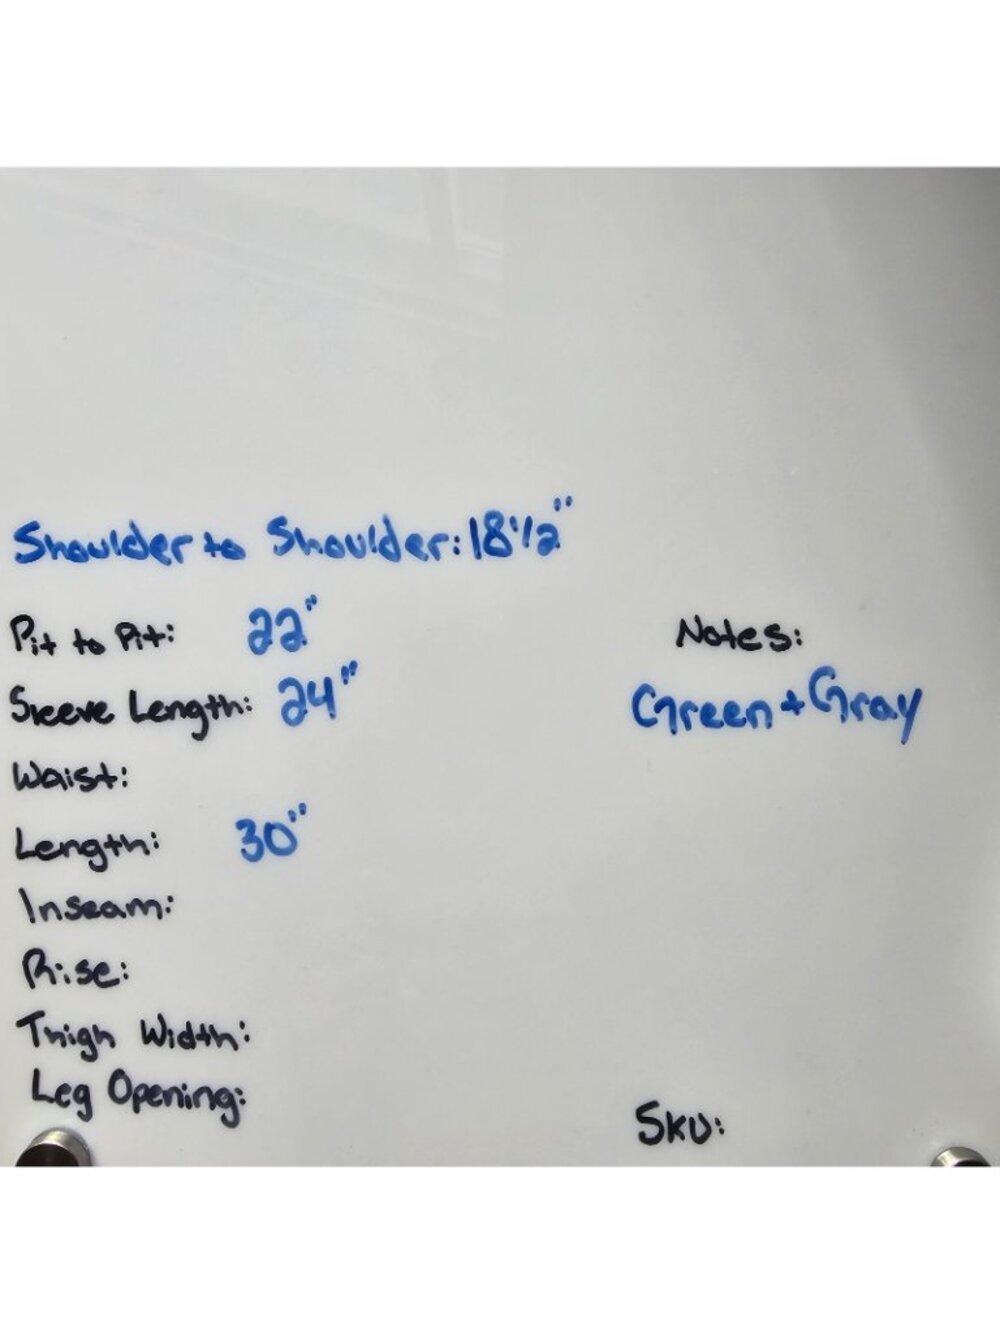 Shoulder to Shoulder: 18 1/2"
Pit to Pit: 22"
Notes:
Sleeve Length: 24"
Green + Gray
Waist:
Length: 30"
Inseam:
Rise:
Thigh Width:
Leg Opening:
SKU: